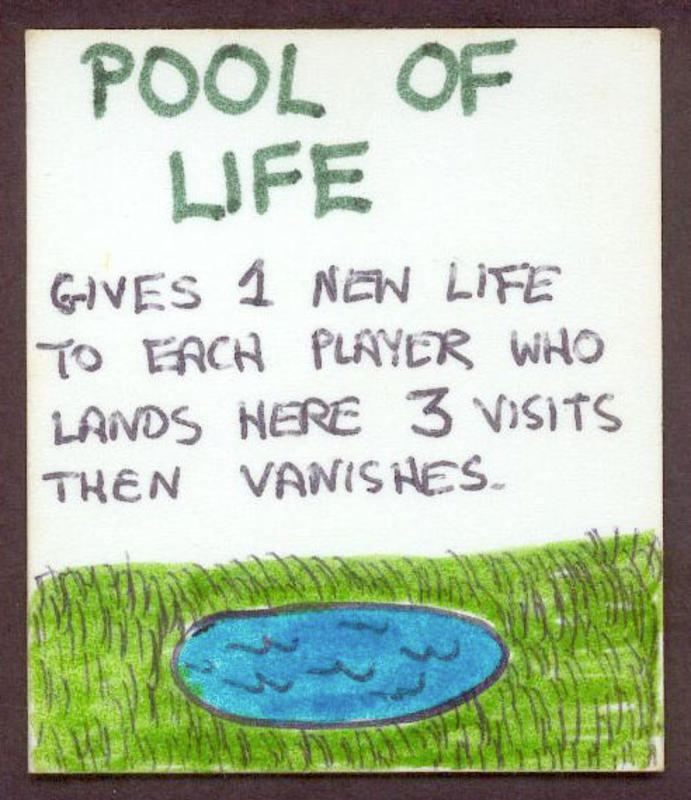 POOL OF
LIFE
GIVES 1 NEW LIFE
TO EACH PLAYER WHO
LANDS HERE 3 VISITS
THEN VANISHES.